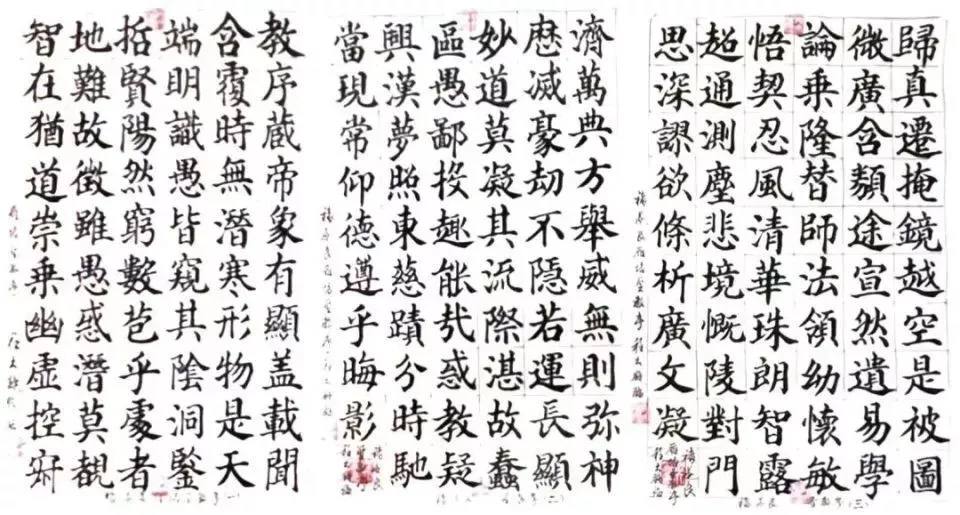 教序蔵帝象有顯盖載聞
含覆時無潛寒形物是天
端明識愚皆窺其陰洞鑒
括賢陽然窮數苞乎處者
地難故徵雖愚惑潛莫覩
智在猶道崇乗幽虚控寂
濟萬典方舉威無則弥神
歷滅豪劫不隱若運長顯
妙道莫凝其流際湛故蠢
區愚鄙投趣能㦲惑教疑
興漢夢照東慈蹟分時馳
當現常仰德遵乎晦影
歸真遷掩鏡越空是被圖
微廣含類途宣然遺易學
論乗隆替師法領幼懷敏
悟契忍風清華珠朗智露
超通測塵悲境慨陵對門
思深謬欲條析廣文凝